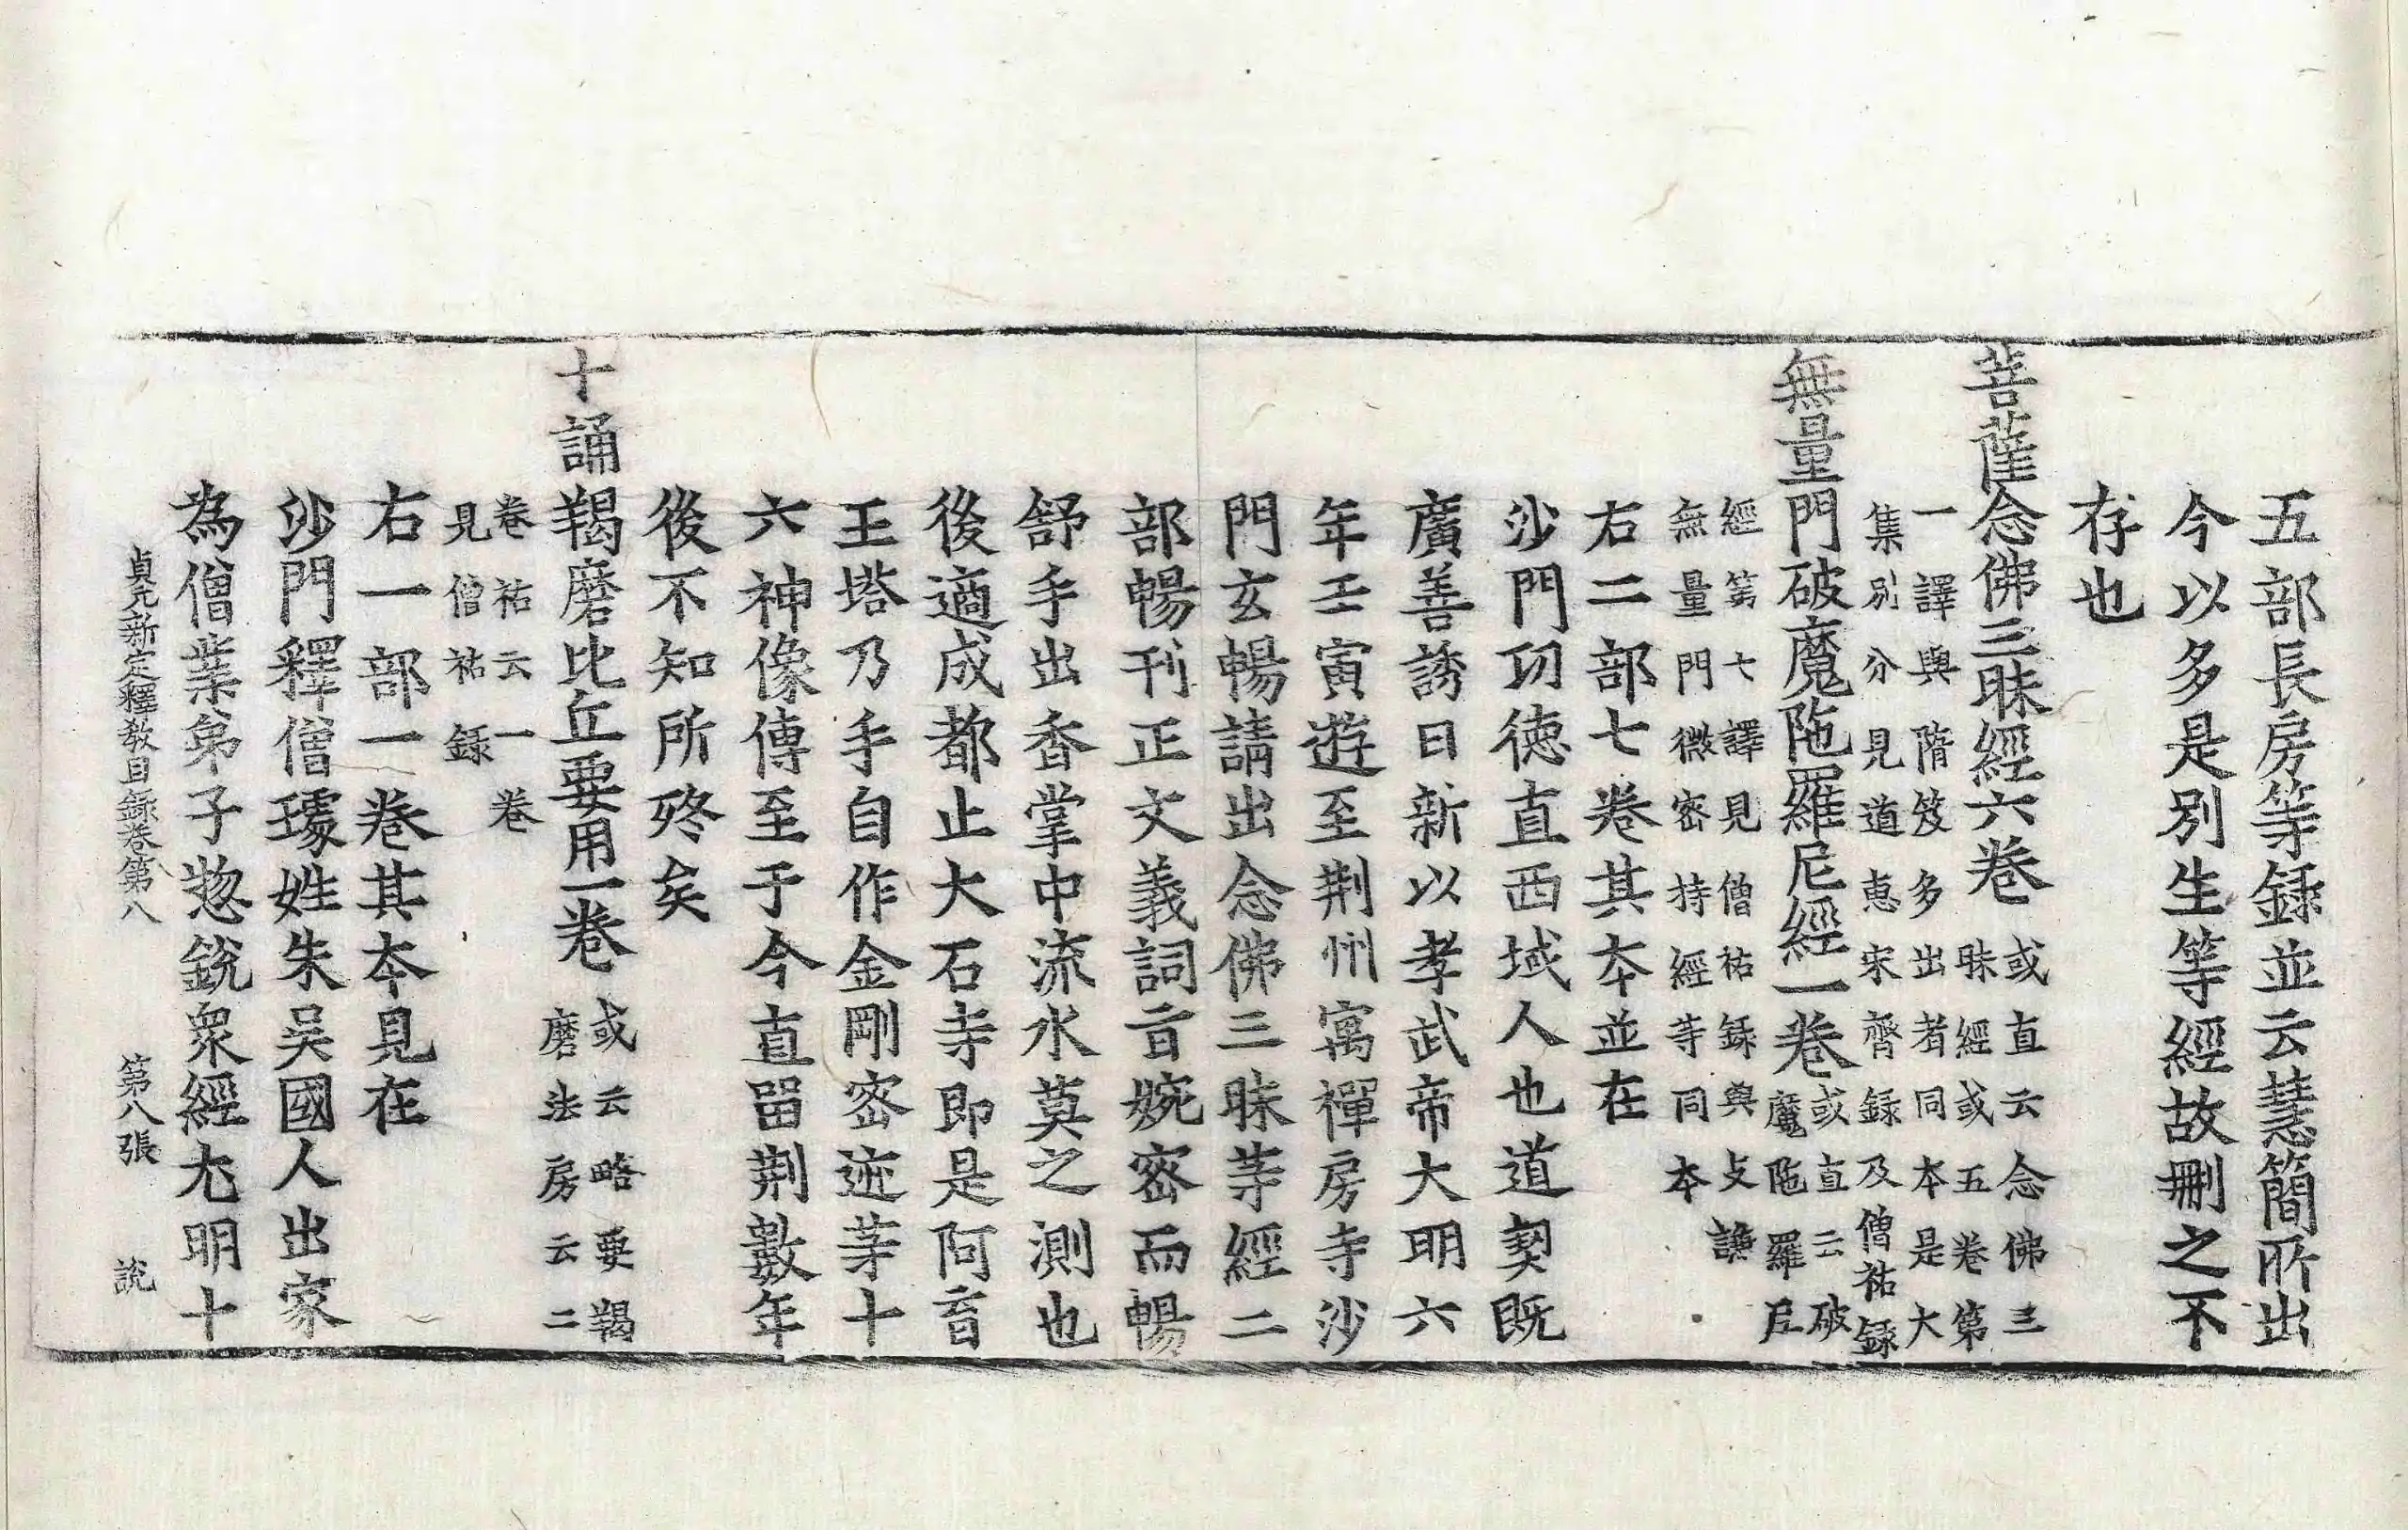 五部長房等録並云慧簡所出
今以多是別生等經故刪之不
存也
菩薩念佛三昧經六卷 或直云念佛三
昧經或五卷第
一譯與隋笈多出者同本是大
集別分見道惠宋齊録及僧祐録
無量門破魔陁羅尼經一卷 或直云破
魔陁羅尼
經第七譯見僧祐録與支謙
無量門微密持經等同本
右二部七卷其本並在
沙門功徳直西域人也道契既
廣善誘日新以孝武帝大明六
年壬寅遊至荆州寓禪房寺沙
門玄暢請出念佛三昧等經二
部暢刊正文義詞旨婉密而暢
舒手出香掌中流水莫之測也
後適成都止大石寺即是阿育
王塔乃手自作金剛密迹等十
六神像傳至于今直留荆數年
後不知所終矣
十誦羯磨比丘要用一卷 或云略要羯
磨法房云二
卷祐云一卷
見僧祐録
右一部一卷其本見在
沙門釋僧璩姓朱吳國人出家
為僧業弟子惣銳衆經尤明十
貞元新定釋教目録卷第八 第八張 說